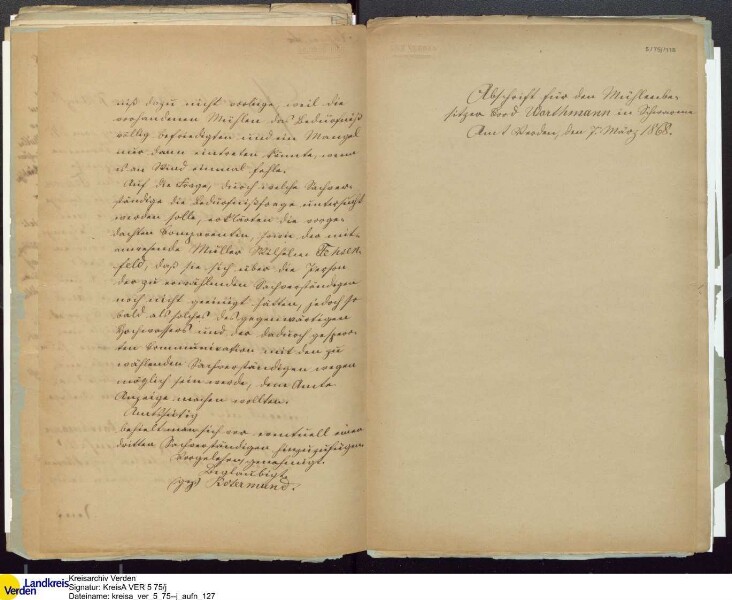 niß dazu nicht vorliege, weil die
vorhandenen Mühlen das Bedürfniß
völlig befriedigten und ein Mangel
nur dann eintreten könnte, wenn
es an Wind einmal fehle.
Auf die Frage, durch welche Sachver-
ständige die Bedürfnißfrage untersucht
werden solle, erklärten die vorge-
dachten Comparenten, sowie der mit-
anwesende Müller Wilhelm
feld, daß sie sich über die Person
der zu erwählenden Sachverständigen
noch nicht geeinigt hätten, jedoch so
bald als solches des gegenwärtigen
Hochwassers und der dadurch gesperr-
ten Communication mit den zu
wählenden Sachverständigen wegen
möglich sein werde, dem Amte
Anzeige machen wollten.
Amtsseitig
behielt man sich vor eventuell einen
dritten Sachverständigen hinzuzufügen.
Vorgelesen, genehmigt.
Beglaubigt
gez. Rotermund.
Abschrift für den Mühlenbe-
sitzer Cord Worthmann in Schwarme
Amt Verden, den 7. März 1868.
5/75j/110
Landkreis
Verden
Kreisarchiv Verden
Signatur: KreisA VER 5 75/j
Dateiname: kreisa_ver_5_75--j_aufn_127